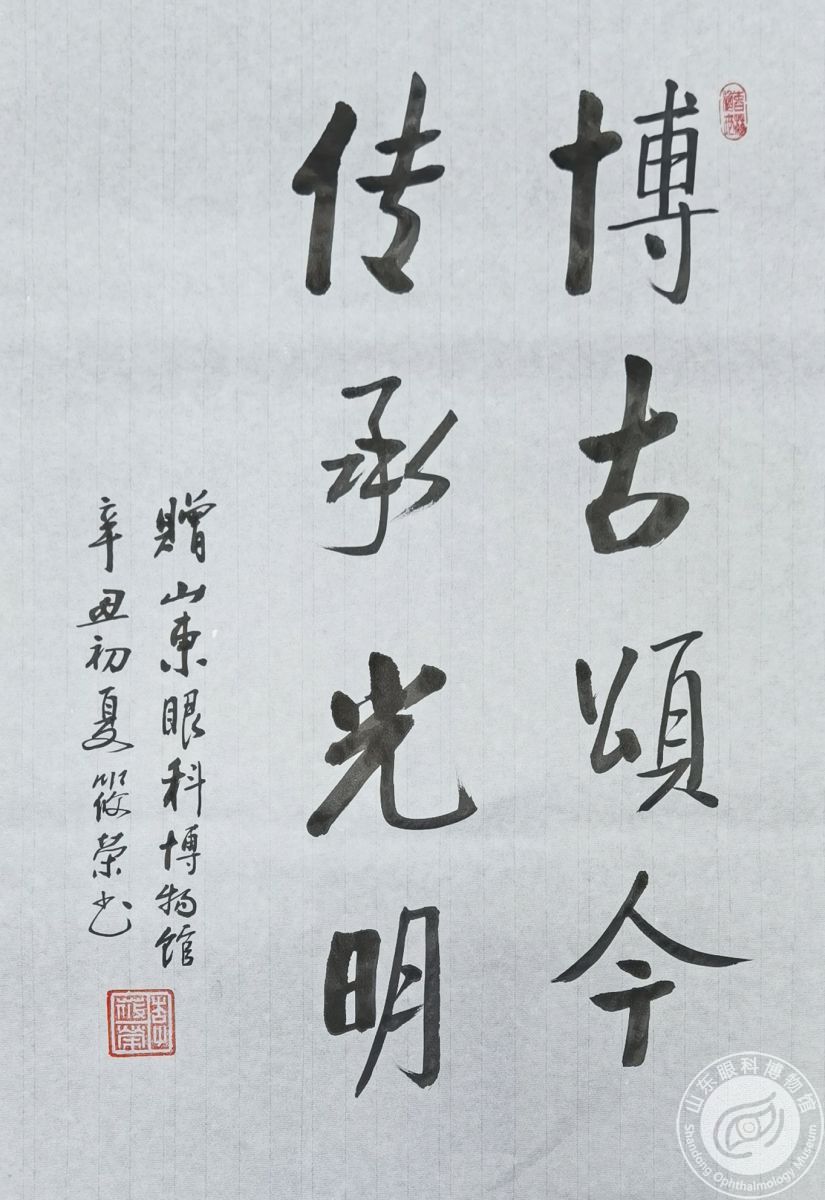 博古頌今
传承光明
贈山東眼科博物馆
辛丑初夏筱荣书
山东眼科博物馆
Shandong Ophthalmology Museum